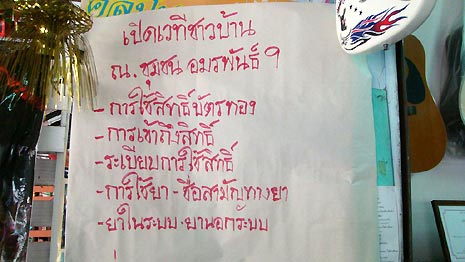 เปิดเวทีชาวบ้าน
ณ. ชุมชน อมรพันธ์ 9
- การใช้สิทธิ์บัตรทอง
- การเข้าถึงสิทธิ์
- ระเบียบการใช้สิทธิ์
- การใช้ยา - ชื่อสามัญทางยา
- ยาในระบบ. ยานอกระบบ